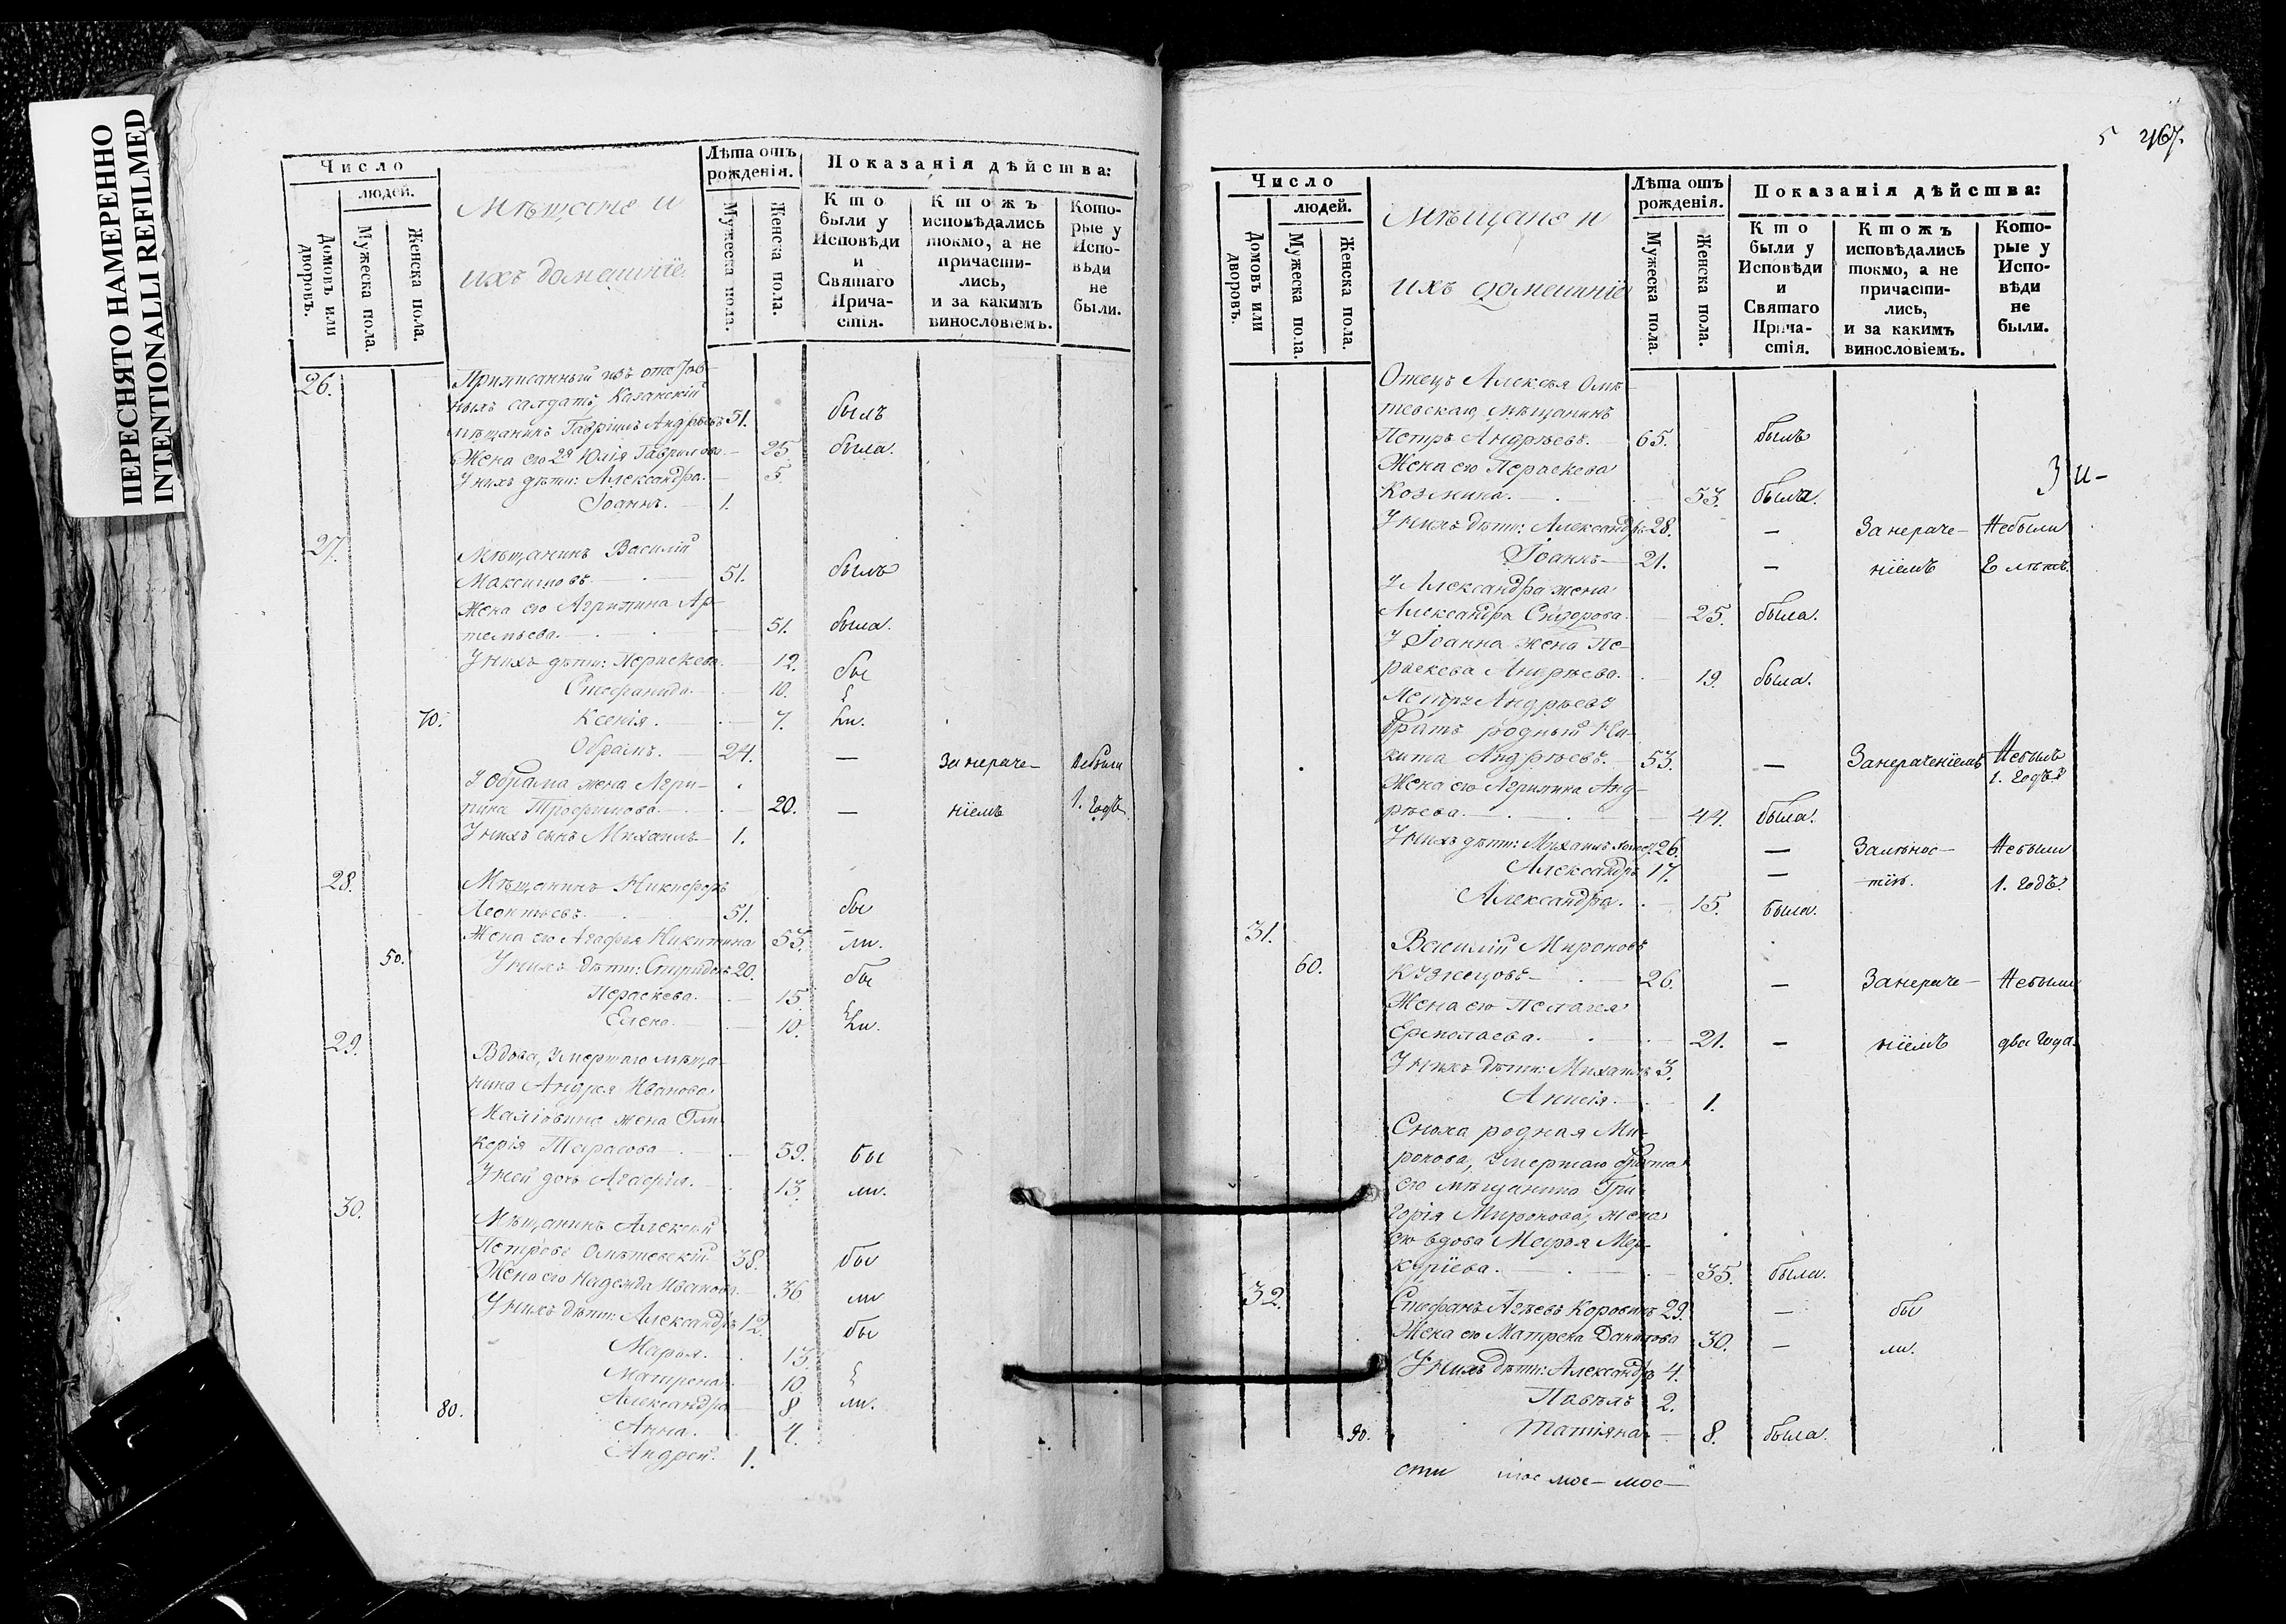 ПЕРЕСНЯТО НАМЕРЕННО
INTENTIONALLI REFILMED
Число
людей.
Домовъ или дворовъ.
Мужеска пола.
Женска пола.
Мѣщане и
ихъ домашніе
Лѣта отъ рожденія.
Мужеска пола.
Женска пола.
Показанія дѣйства:
Кто были у Исповѣди и Святаго Прича- стія.
Ктожъ исповѣдались токмо, а не причасти- лись, и за какимъ винословіемъ.
Кото- рые у Испо- вѣди не были.
26.
Приписанный изъ отстав-
ныхъ салдатъ, Казанскій
мѣщанинъ Гавріилъ Андрѣевъ 51. былъ
Жена его 2я Юлія Гаврилова 25 была.
У нихъ дѣти: Александра. 5
Іоаннъ. 1.
27.
Мѣщанинъ Василій
Максимовъ. 51. былъ
Жена его Агрипина Ар-
темьева. 51. была.
У нихъ дѣти: Параскева. 12. бы
Стефанида. 10.
70. Ксенія. 7. ли.
Обрамъ. 24. — За нераче- Небыли
У Обрама жена Агри-
пина Трофимова. 20. — ніемъ 1. годъ
У нихъ сынъ Михаилъ 1.
28.
Мѣщанинъ Никифоръ
Леонтьевъ. 51. бы
Жена его Агафья Никитина 53. ли.
50. У нихъ дѣти: Спиридонъ 20. бы
Параскева. 15.
Елена. 10. ли.
29.
Вдова, умершаго мѣща-
нина Андрея Иванова
жена Гли-
керія Тарасова 59. бы
У ней дочь Агафія. 13. ли.
30.
Мѣщанинъ Алексѣй
Петровъ Омѣтевскій 38. бы
Жена его Надежда Иванова 36 ли
У нихъ дѣти: Александръ 12. бы
Марья. 13.
Матрена 10.
Александра 8 ли.
80. Анна. 4.
Андрей. 1.
5 467.
Число
людей.
Домовъ или дворовъ.
Мужеска пола.
Женска пола.
Мѣщане и
ихъ домашніе
Лѣта отъ рожденія.
Мужеска пола.
Женска пола.
Показанія дѣйства:
Кто были у Исповѣди и Святаго Прича- стія.
Ктожъ исповѣдались токмо, а не причасти- лись, и за какимъ винословіемъ.
Кото- рые у Испо- вѣди не были.
Отецъ Алексѣя Омѣ-
тевскаго, мѣщанинъ
Петръ Андрѣевъ. 65. былъ
Жена его Параскева
Козмина. 53. была.
У нихъ дѣти: Александръ 28. — За нераче- Небыли
Іоаннъ 21. — ніемъ 2 лѣтъ.
У Александра жена
Александра Сидорова. 25. была.
У Іоанна жена Па-
раскева Андрѣева. 19. была.
Андрѣева
братъ родный Ни-
кита Андрѣевъ. 53. — За нераченіемъ Небылъ
1. годъ
Жена его Агрипина Анд-
рѣева. 44. была.
У нихъ дѣти: Михаилъ 26. — За лѣнос- Небыли
Александръ 17. — тію. 1. годъ.
Александра. 15. была.
31.
Василій Мироновъ
60. Кузнецовъ 26. — За нераче- Небыли
Жена его Пелагея
Ермолаева. 21. — ніемъ два года.
У нихъ дѣти: Михаилъ 3.
Аннсія. 1.
Сноха родная Ми-
ронова, умершаго брата
его мѣщанина Гри-
горія Миронова, жена
его вдова Марья Мер-
куріева. 35. была.
32. Стефанъ Агѣевъ Коровинъ 29. — бы
Жена его Матрена Данилова 30. — ли.
У нихъ дѣти: Александръ 4.
Павелъ 2.
90. Татіяна 8. была.
сти мос- мос-